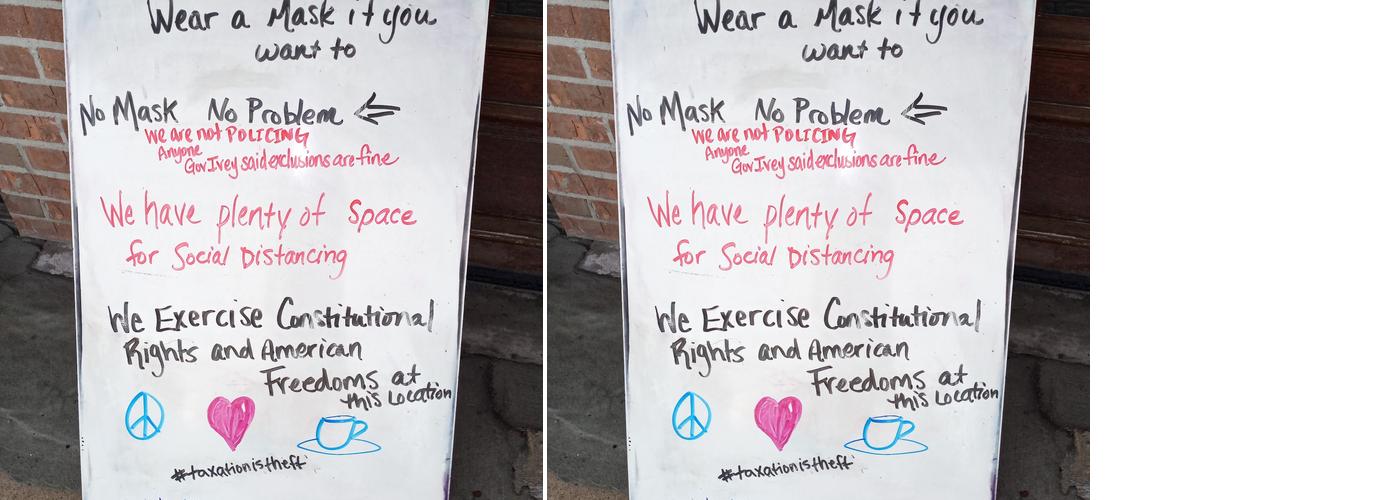 Wear a Mask if you
want to
No Mask No Problem
We are not POLICING
Anyone
Gov Ivey said exclusions are fine
We have plenty of Space
for Social Distancing
We Exercise Constitutional
Rights and American
Freedoms at
this Location
#taxationistheft
Wear a Mask if you
want to
No Mask No Problem
We are not POLICING
Anyone
Gov Ivey said exclusions are fine
We have plenty of Space
for Social Distancing
We Exercise Constitutional
Rights and American
Freedoms at
this Location
#taxationistheft